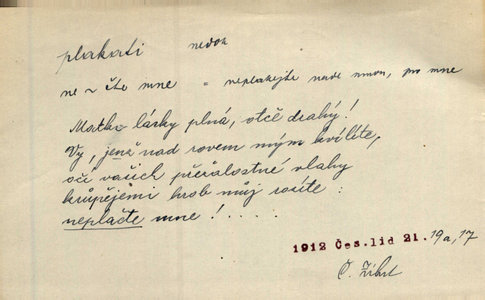 plakati nedok
ne ~ čte mne = neplakejte nade mnou, pro mne
Matko lásky plná, otče drahý!
Vy, jenž nad rovem mým kvílíte,
očí vašich přežalostné vlahy
krůpějemi hrob můj rosíte:
neplačte mne!.....
1912 Čes. lid 21. 19a, 17
Č. Zíbrt